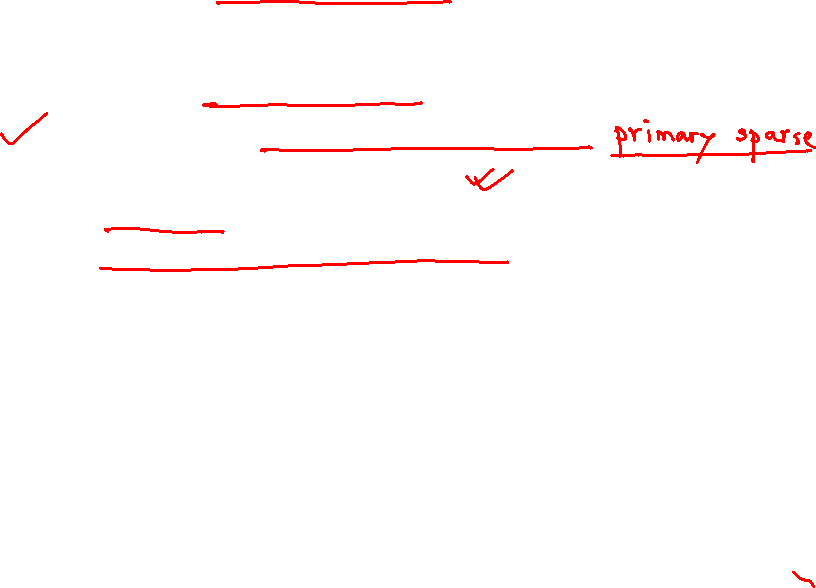 primary sparse